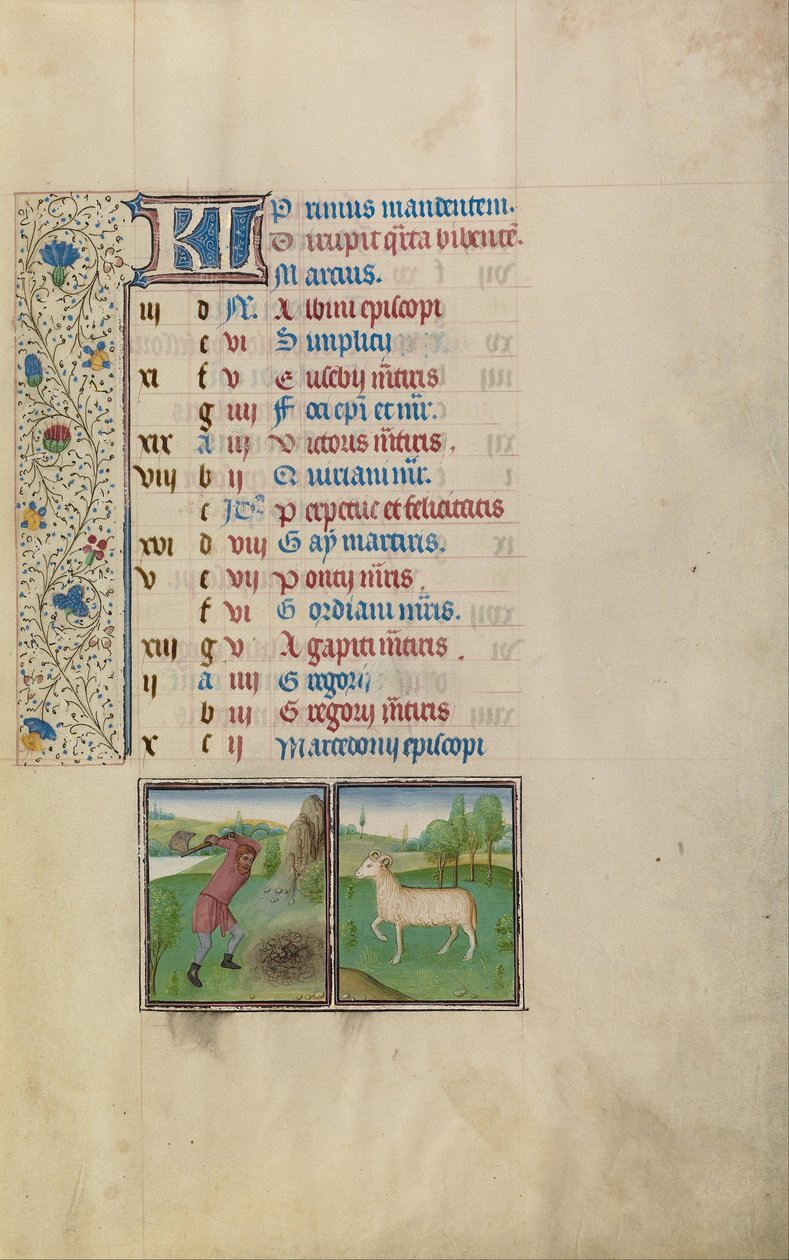 Kl Primus mandentem.
Dirupit q̄rta bibentē.
Marcius.
iii d N. Albini episcopi
e vi Simplicij
xi f v Eusebij m̄tiris
g iiij Foci ep̄i et mr̄.
xix a iij Victoris m̄tiris.
viij b ij Quiriani mr̄.
c Perpetue et felicitatis
xvi d viij Gaÿ martiris.
v e vij Pontij mr̄is.
f vi Gordiani mr̄is.
xiij g v Agapiti m̄tiris.
ij a iiij Gregorij
b iij Gregorij m̄tiris
x c ij Marcedonij episcopi